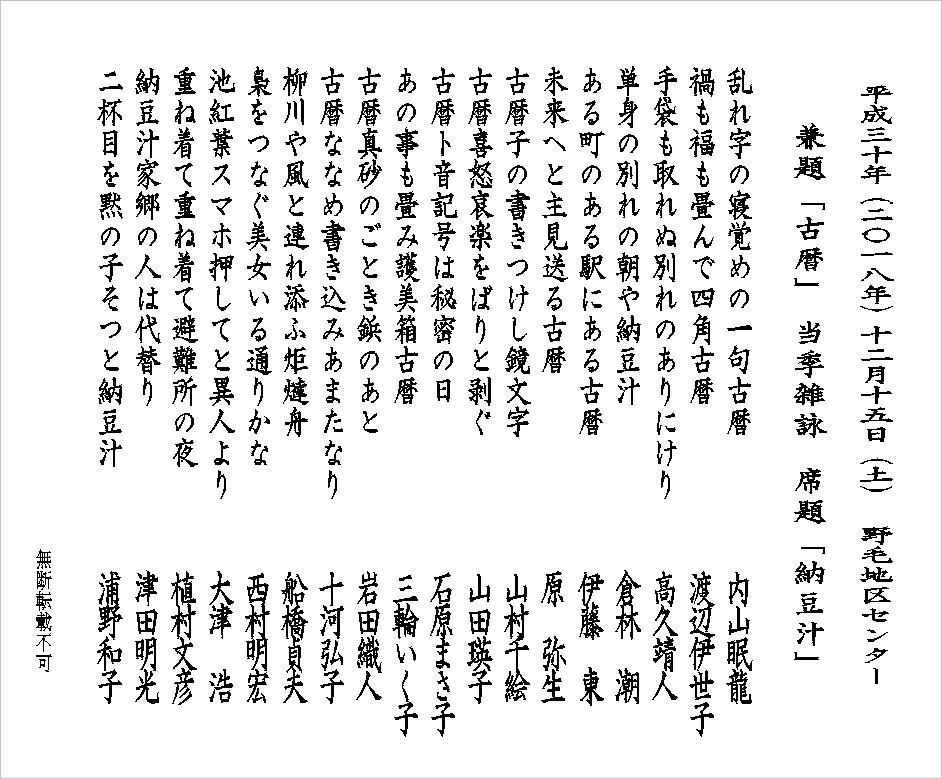 平成三十年（二〇一八年）十二月十五日（土）　野毛地区センター
兼題「古暦」　当季雑詠　席題「納豆汁」
乱れ字の寝覚めの一句古暦　内山眠龍
禍も福も畳んで四角古暦　渡辺伊世子
手袋も取れぬ別れのありにけり　高久靖人
単身の別れの朝や納豆汁　倉林　潮
ある町のある駅にある古暦　伊藤　東
未来へと主見送る古暦　原　弥生
古暦子の書きつけし鏡文字　山村千絵
古暦喜怒哀楽をばりと剥ぐ　山田瑛子
古暦ト音記号は秘密の日　石原まさ子
あの事も畳み護美箱古暦　三輪いく子
古暦真砂のごとき鋲のあと　岩田織人
古暦ななめ書き込みあまたなり　十河弘子
柳川や風と連れ添ふ炬燵舟　船橋貞夫
梟をつなぐ美女いる通りかな　西村明宏
池紅葉スマホ押してと異人より　大津　浩
重ね着て重ね着て避難所の夜　植村文彦
納豆汁家郷の人は代替り　津田明光
二杯目を黙の子そつと納豆汁　浦野和子
無断転載不可